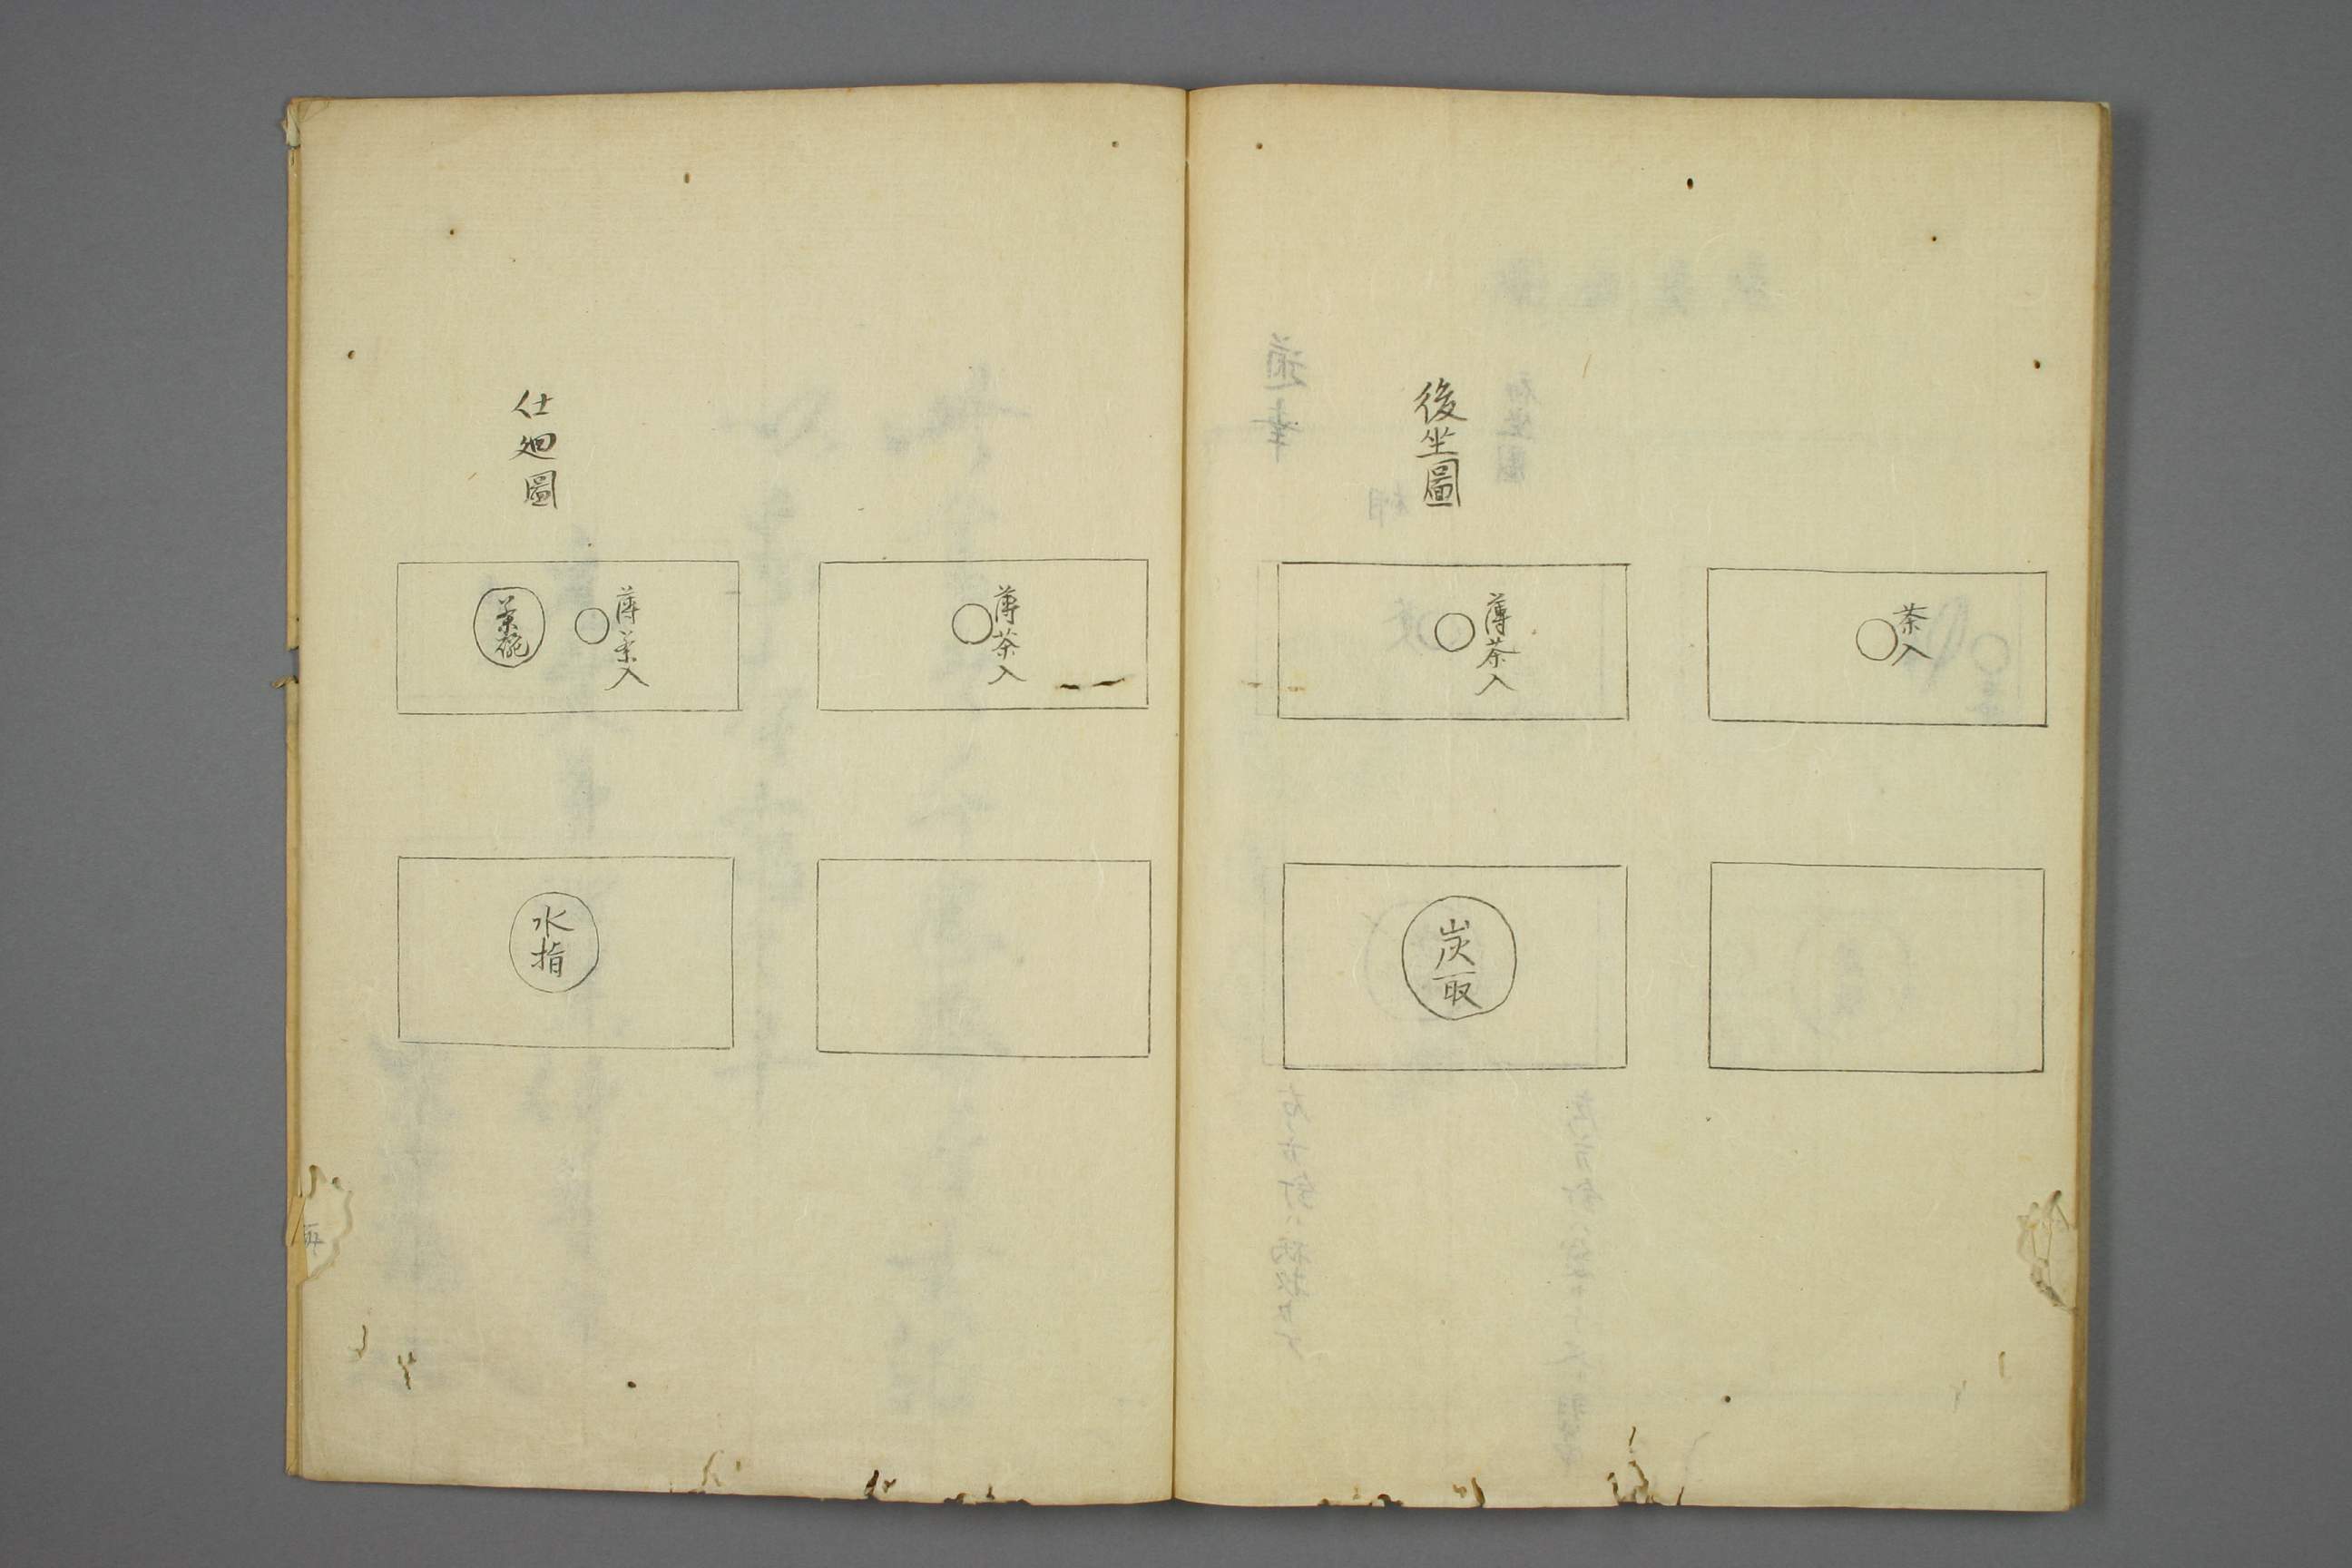 茶入
後坐圖
薄茶入
炭取
薄茶入
仕廻圖
薄茶入
茶碗
水指